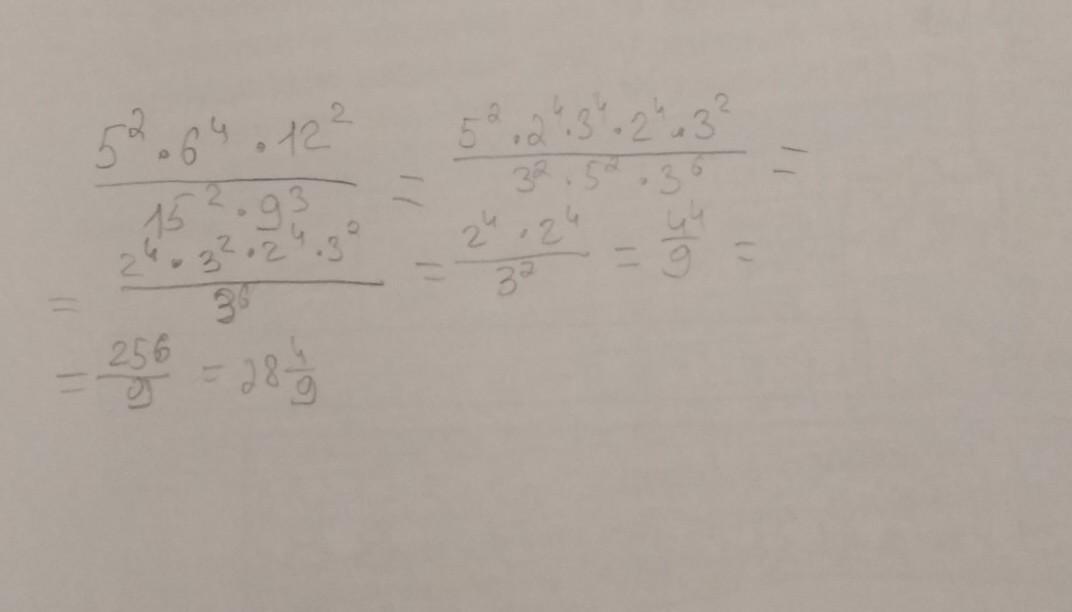 5² · 6⁴ · 12² / 15² · 9³ = 5² · 2⁴ · 3⁴ · 2⁴ · 3² / 3² · 5² · 3⁶ =
= 2⁴ · 3² · 2⁴ · 3² / 3⁶ = 2⁴ · 2⁴ / 3² = 4⁴ / 9 =
= 256 / 9 = 28 4/9